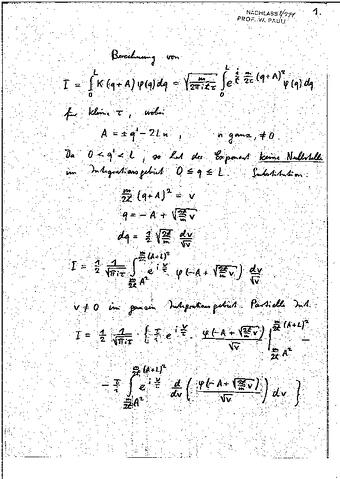 NACHLASS
PROF. W. PAULI
1.
Berechnung von
I = ∫₀ᴸ K(q+A) φ(q) dq = √(m/2πiℏτ) ∫₀ᴸ e^{(i/τ) (m/2ℏ) (q+A)²} φ(q) dq
für kleine τ, wobei
A = ± q' − 2Ln , n ganz, ≠ 0.
Da 0 < q' < L, so hat der Exponent keine Nullstelle
im Integrationsgebiet 0 ≤ q ≤ L. Substitution.
m/2ℏ (q+A)² = v
q = −A + √(2ℏ/m v)
dq = 1/2 √(2ℏ/m) dv/√v
I = 1/2 1/√(πiτ) ∫_{m/2ℏ A²}^{m/2ℏ (A+L)²} e^{i v/τ} φ(−A + √(2ℏ/m v)) dv/√v
v ≠ 0 im ganzen Integrationsgebiet. Partielle Int.
I = 1/2 1/√(πiτ) · { τ/i e^{i v/τ} · φ(−A + √(2ℏ/m v))/√v |_{m/2ℏ A²}^{m/2ℏ (A+L)²} −
− τ/i ∫_{m/2ℏ A²}^{m/2ℏ (A+L)²} e^{i v/τ} d/dv ( φ(−A + √(2ℏ/m v))/√v ) dv }